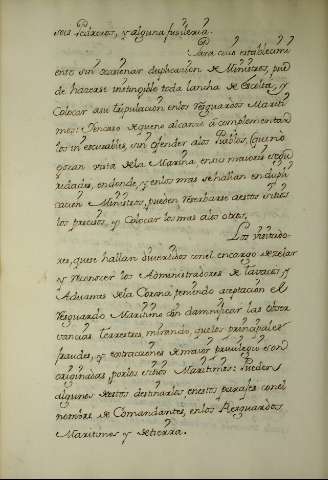 seis Pedreros, y alguna fusileria.
Para cuio establecimi
ento sin ocasionar duplicacion de Ministros, pue
de hacerse extinguible toda lancha de Escolta, y
Colocar asu tripulacion enlos Resguardos Mariti
mos: Encaso de que no alcance à complementar
los inescusables, sin ofender alos Pueblos, que no
gozan vista dela Marina, en sus maiores segu
ridades, endonde, y enlos mas se hallan en dupli
cacion Ministros, pueden reservarse aestos sitios
los precisos, y Colocar los mas alos otros.
Los visitado
res, que se hallan divertidos con el encargo de zelar
y reconocer los Administradores de tavacos, y
Aduanas dela Corona teniendo aceptacion el
Resguardo Maritimo sin damnificar las obser
vancias terrestres, mirando, que los principales
fraudes, y extracciones de maior privilegio son
originadas, por los sitios Maritimos: Pueden
algunos destos destinarse enestos parajes con el
nombre de Comandantes, enlos Resguardos
Maritimos y detierra.